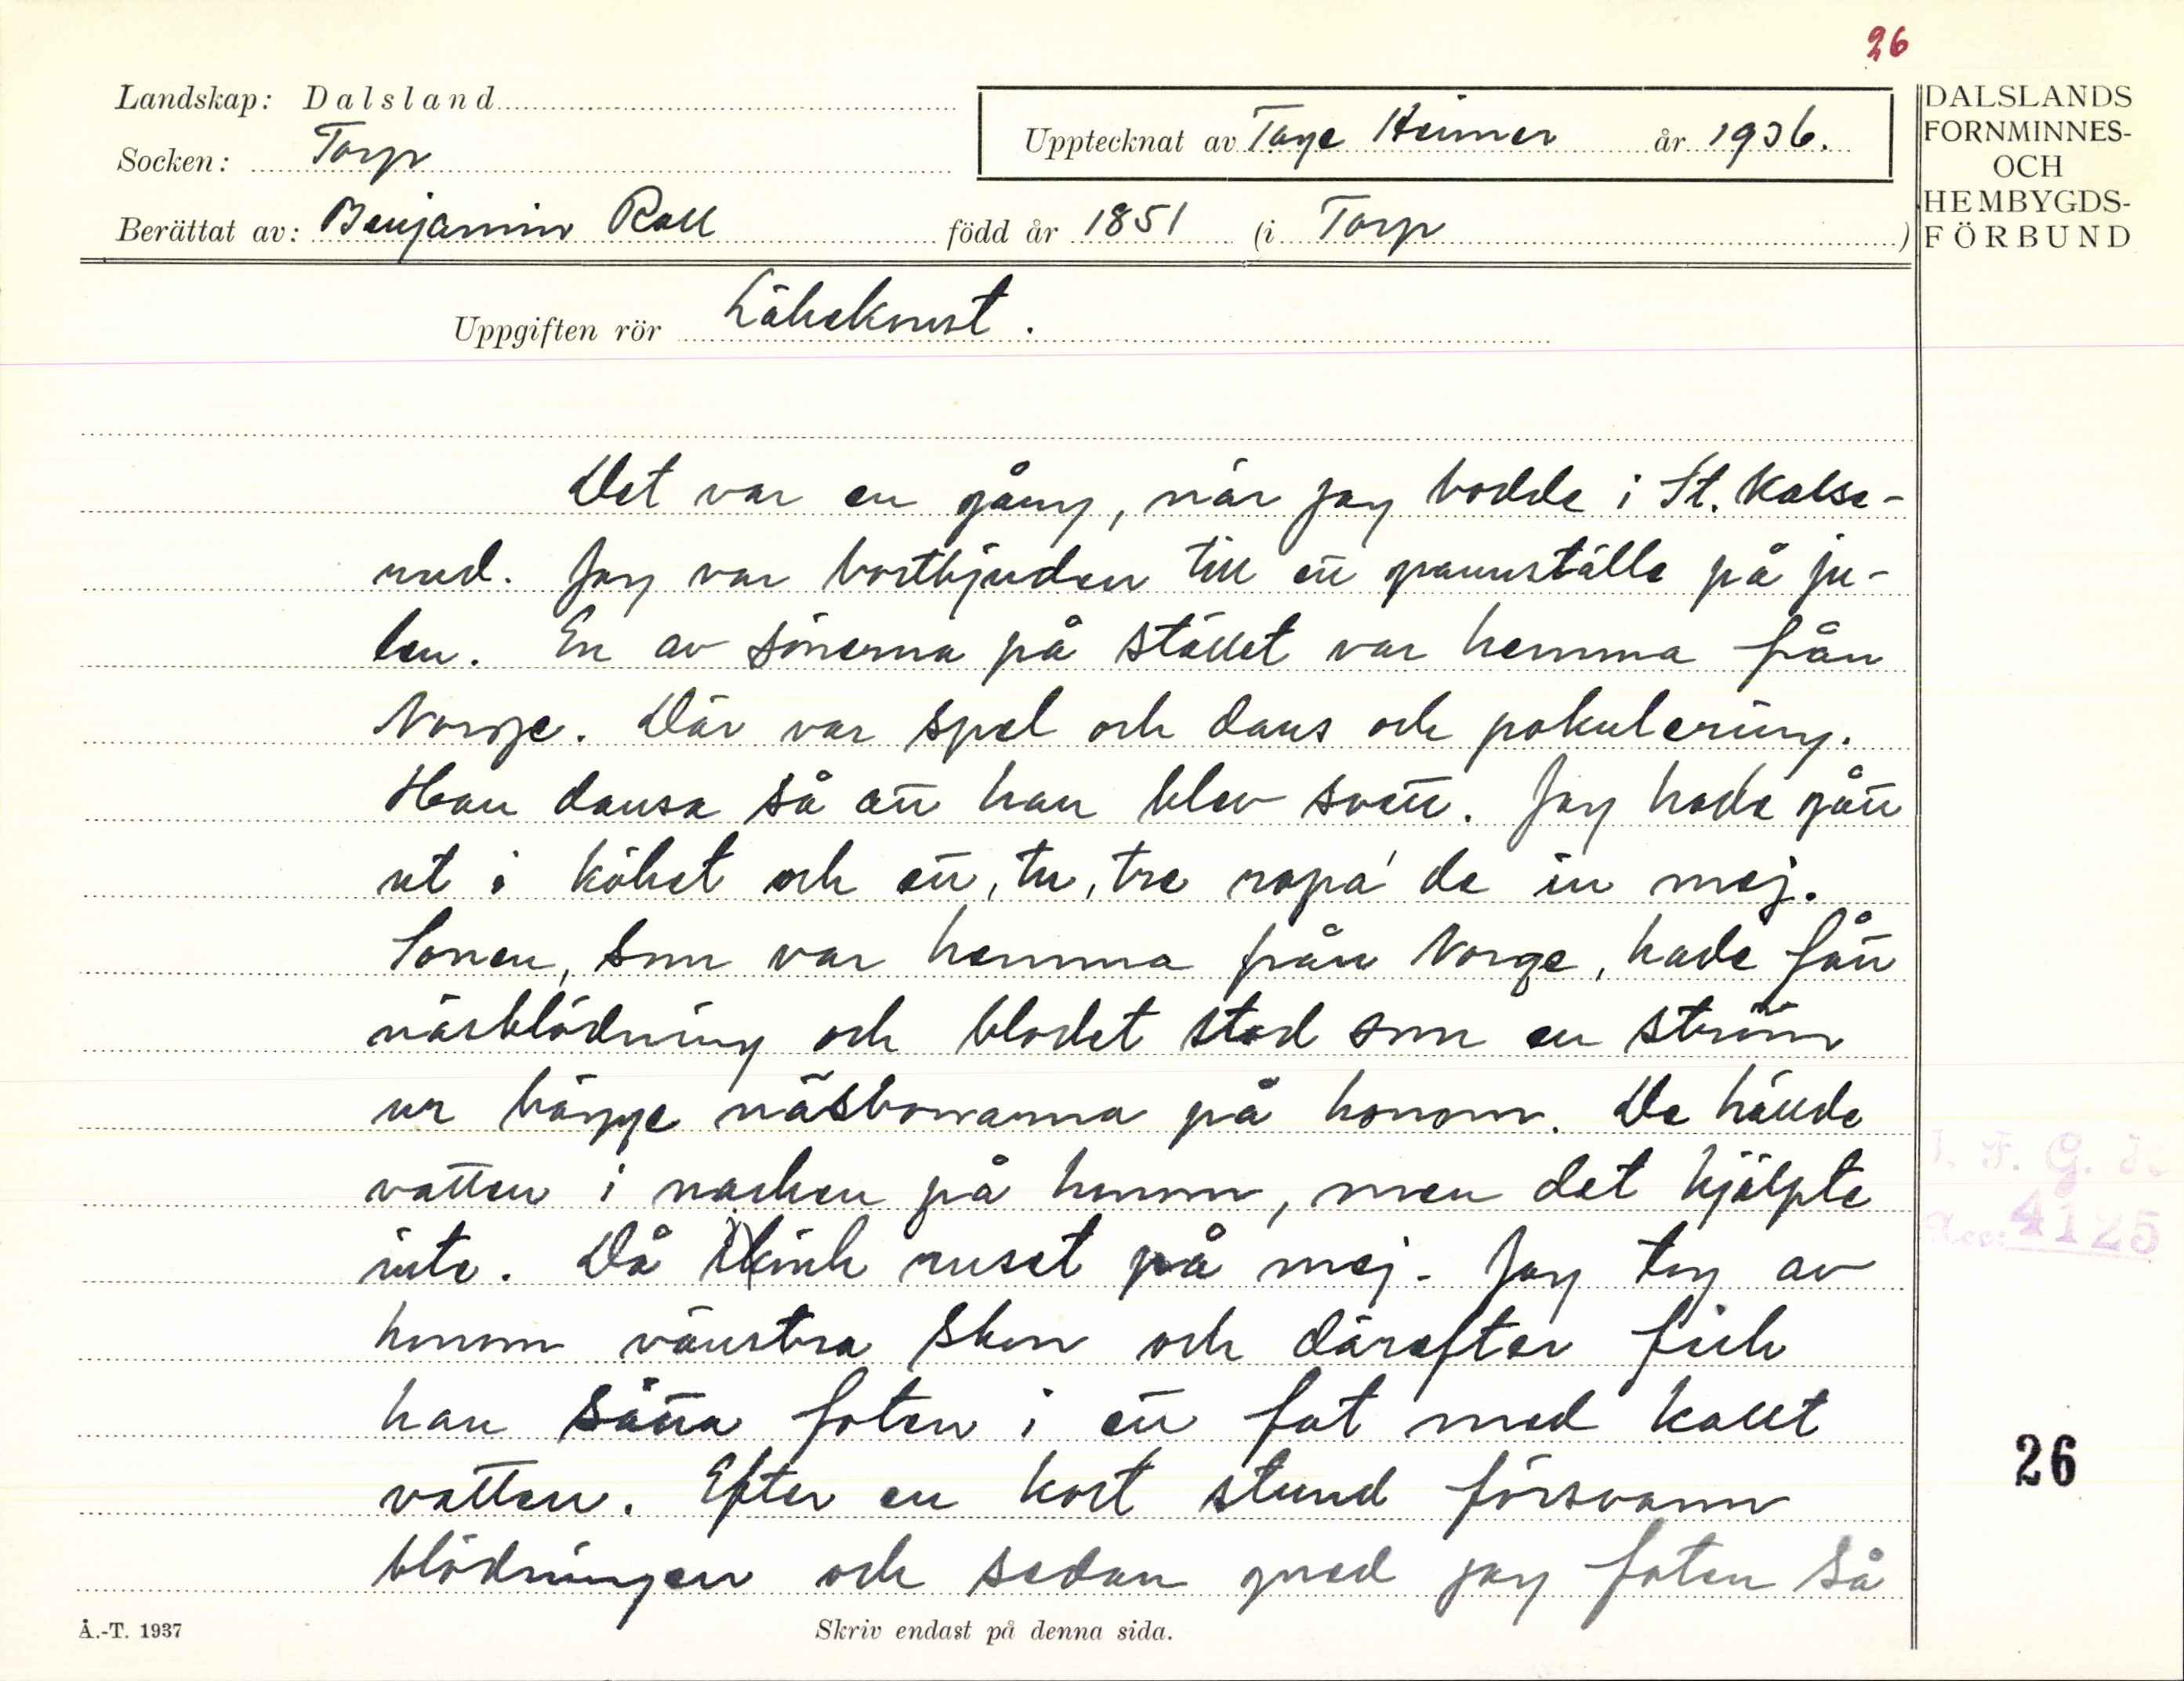 26
Landskap: Dalsland
Socken: Torp
Berättat av: Benjamin Roll född år 1851 (i Torp)
Upptecknat av Tage Heimer år 1936.
DALSLANDS
FORNMINNES-
OCH
HEMBYGDS-
FÖRBUND
Uppgiften rör Läkekonst.
Det var en gång, när jag bodde i St. Kalse-
rud. Jag var bortbjuden till ett grannställe på ju-
len. En av sönerna på stället var hemma från
Norge. Där var spel och dans och pokulering.
Han dansa så att han blev svett. Jag hade gått
ut i köket och ett, tu, tre ropa' de in mej.
Sonen, som var hemma från Norge, hade fått
näsblödning och blodet stod som en ström
ur bägge näsborrarna på honom. De hällde
vatten i nacken på honom, men det hjälpte
inte. Då gick ruset på mej. Jag tog av
honom vänstra skon och därefter fick
han sätta foten i ett fat med kallt
vatten. Efter en kort stund försvann
blödningen och sedan gned jag foten så
4125
26
Å.-T. 1937
Skriv endast på denna sida.